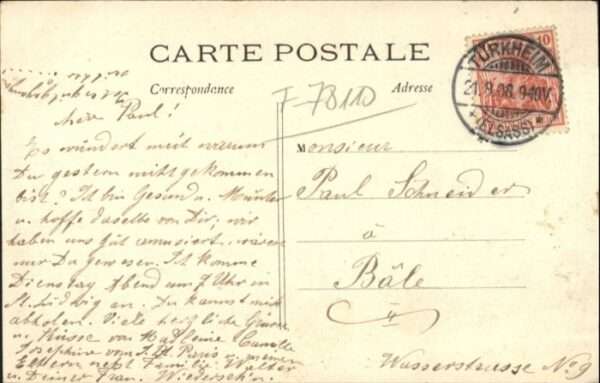 CARTE POSTALE
Correspondance
Adresse
10
TÜRKHEIM
21.9.08. 9-10V.
*(ELSASS)*
F 78110
Herr Paul!
Es wundert mich warum
Du gestern nicht gekommen
bist? Ich bin Gesund u. Munter
u. hoffe dasselbe von Dir, wir
haben uns gut amusiert. wären
nur Du gewesen. Ich komme
Dienstag Abend um 7 Uhr in
St. Ludwig an. Du kannst mich
abholen. Viele herzliche Grüsse
u. Küsse von Madleine Camille
Josephine von Paris u. meinen
Eltern nebst Familie Walter
u Deiner Frau. Wiedersehn.
Monsieur
Paul Schneider
à
Bâle
Wasserstrasse No 9